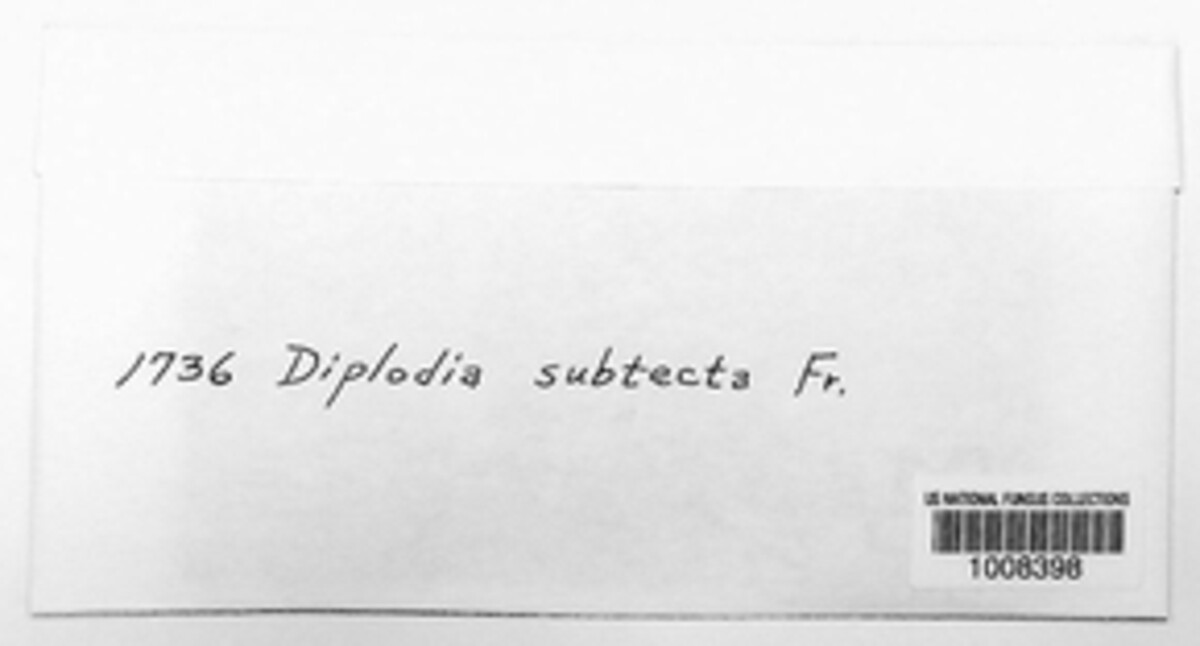 1736 Diplodia subtecta Fr.
US NATIONAL FUNGUS COLLECTIONS
1008398